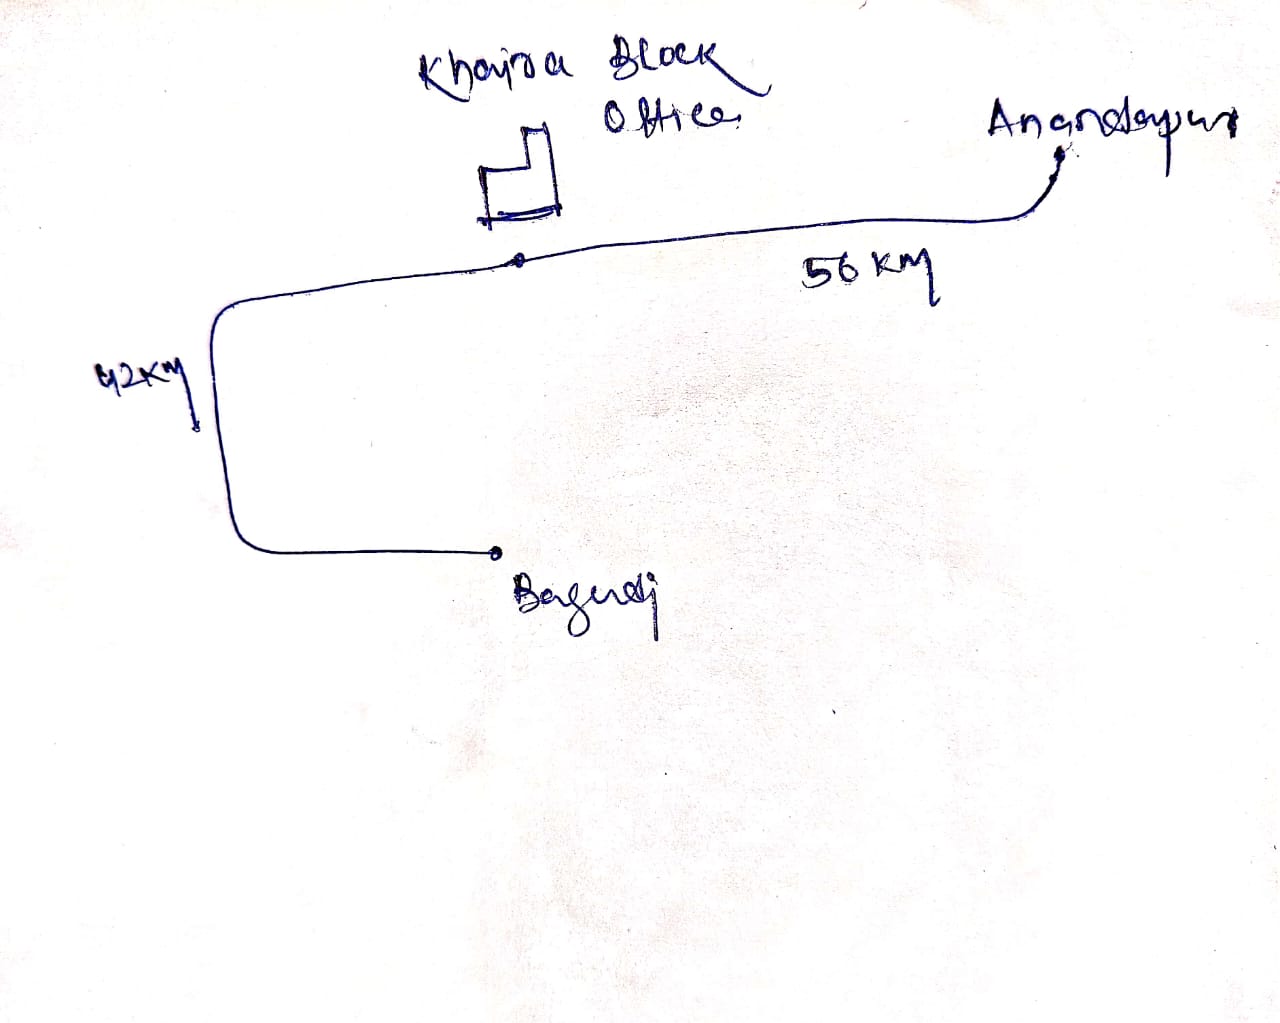 Khaira Block
Office
Anandapur
56 KM
42KM